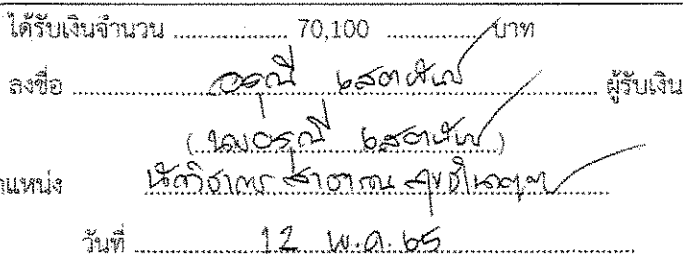 ได้รับเงินจำนวน ................... 70,100 ................... บาท
ลงชื่อ ................... อรุณี ................... ผู้รับเงิน
( นางอรุณี )
ตำแหน่ง นักวิชาการสาธารณสุขชำนาญการ
วันที่ ................... 12 พ.ค. 65 ...................